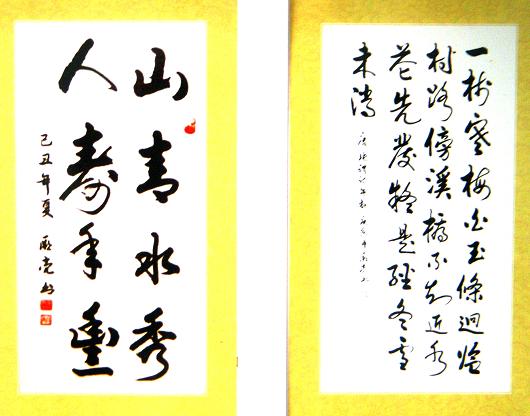 山青水秀
人寿年豐
己丑年夏
一树寒梅白玉條迥临
村路傍溪橋不知近水
花先發疑是經冬雪
未消